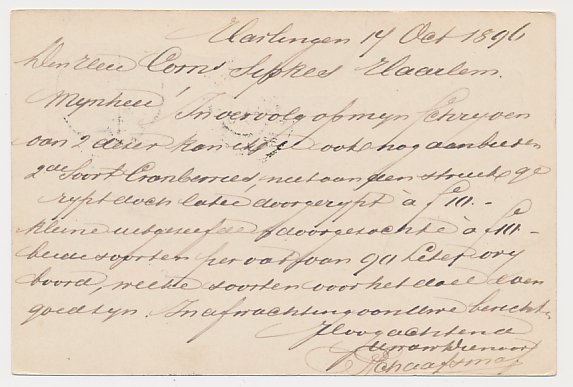 Harlingen 17 Oct 1896
Den Heer Corns Sipkes Haarlem.
Mynheer, In vervolg op myn schryven
van 2 dezer kan ik U ook nog aanbieden
2de Soort Cranberries, niet aan den struik ge
rypt doch later doorgerypt à f 10.-
kleine uitgezeefde doorgezochte à f 10.-
beide soorten per vat van 90 Liter vry
boord, welke soorten voor het doel even
goed zyn. In afwachting van Uwe berichten
Hoogachtend
Uw dw Dienaar
Schaafsma